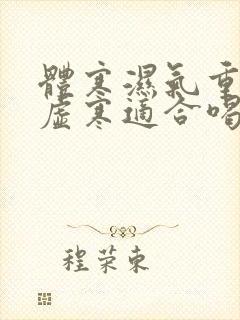 體寒濕氣重
虛寒適合喝
程荣東